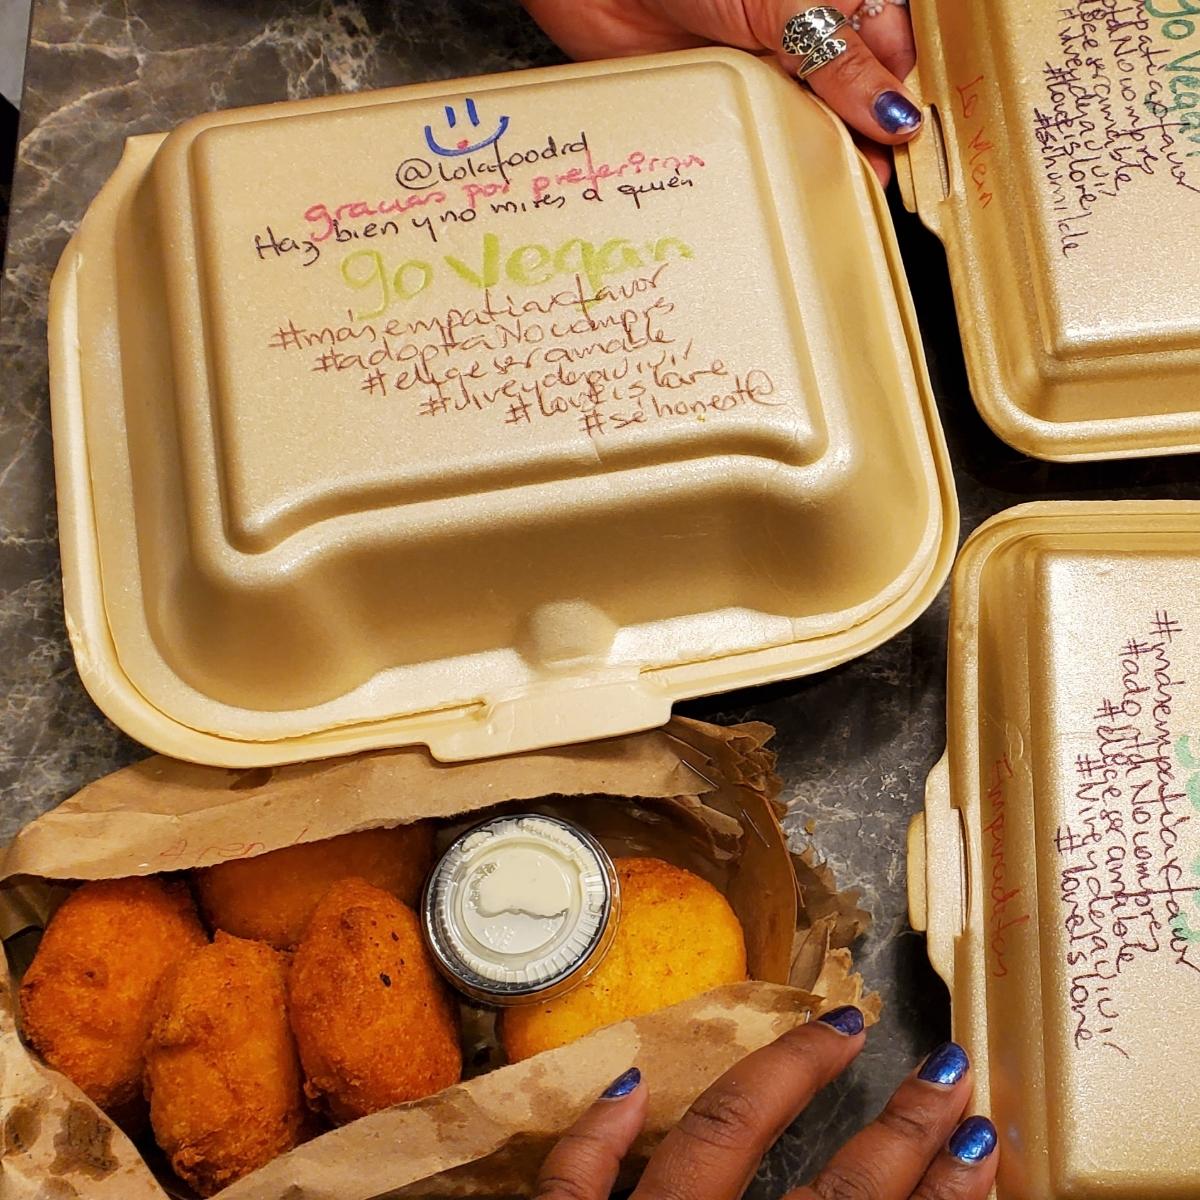 @lolafoodrd
gracias por preferirnos
Haz bien y no mires a quién
go vegan
#másempatiaxfavor
#adoptaNocompres
#eligeseramable
#viveydejavivir
#loveislove
#sehonest@
Lo Mein
go vegan
#adoptaNocompres
#eligeseramable
#viveydejavivir
#loveislove
#sehumilde
Empanaditas
#másempatiaxfavor
#adoptaNocompres
#eligeseramable
#viveydejavivir
#loveislove